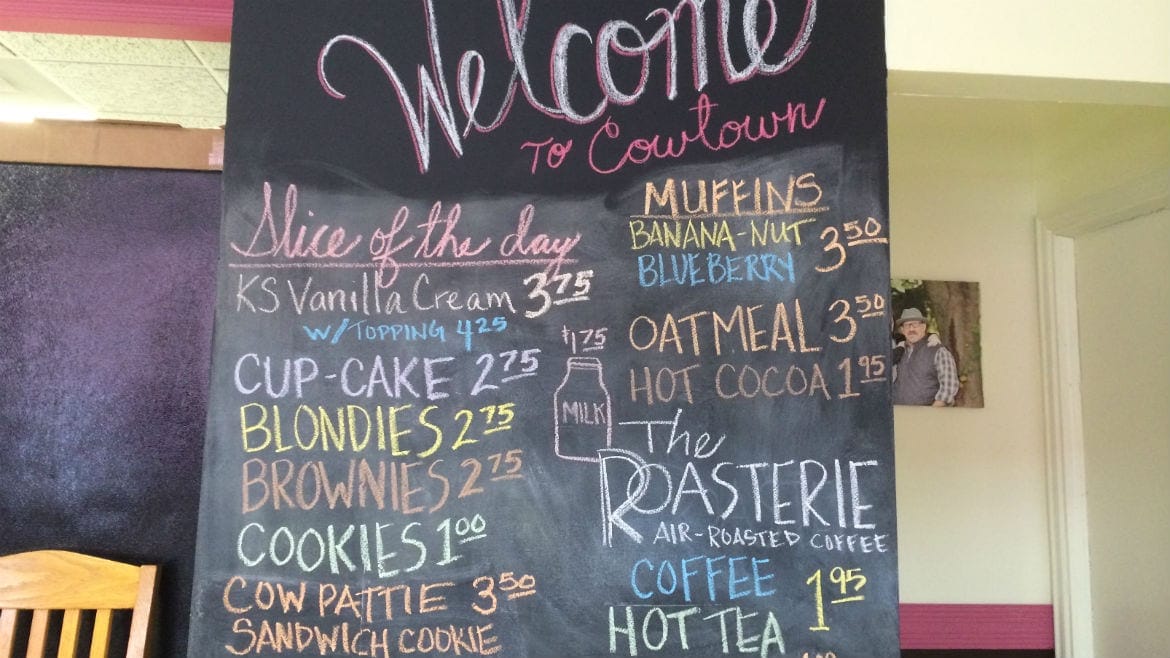 Welcome
TO Cowtown
Slice of the day
KS Vanilla Cream 3.75
W/TOPPING 4.25
CUP-CAKE 2.75
BLONDIES 2.75
BROWNIES 2.75
COOKIES 1.00
COW PATTIE 3.50
SANDWICH COOKIE
$1.75
MILK
MUFFINS
BANANA-NUT
BLUEBERRY
3.50
OATMEAL 3.50
HOT COCOA 1.95
The
ROASTERIE
AIR-ROASTED COFFEE
COFFEE
HOT TEA
1.95